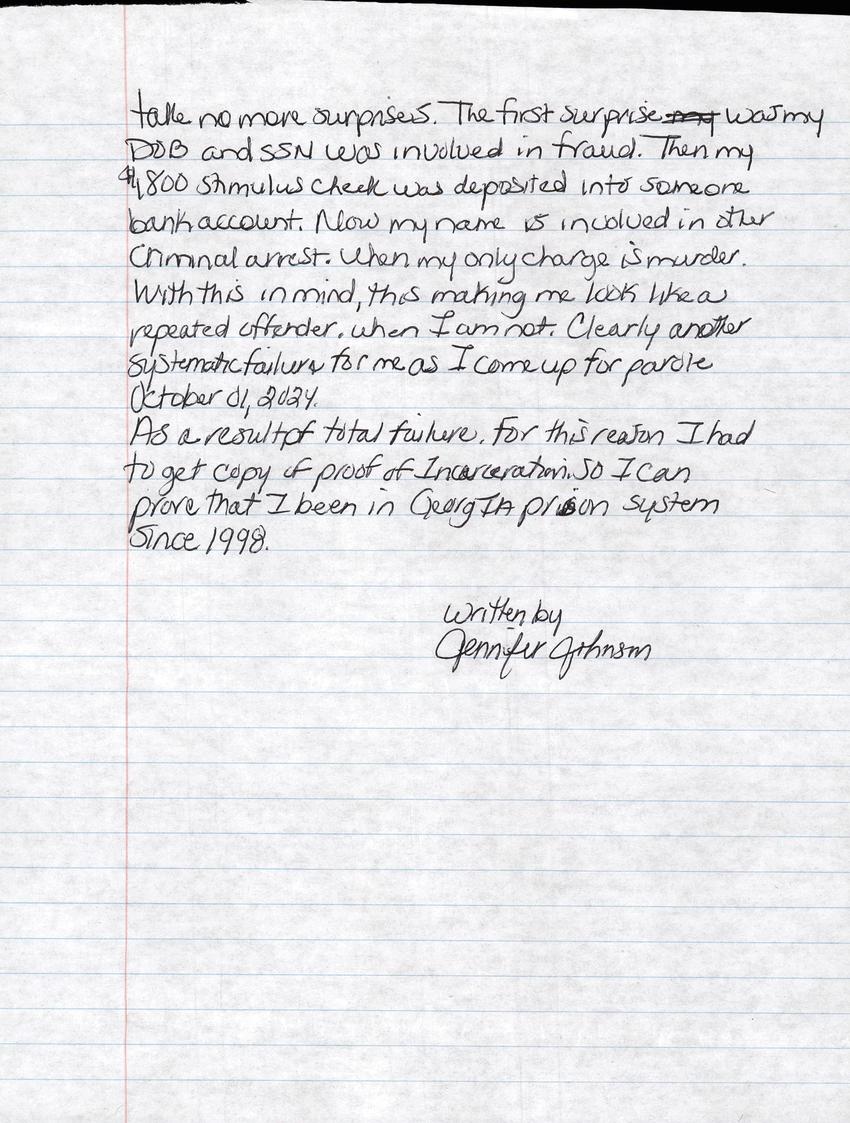 take no more surprisers. The first surprise my was my
DOB and SSN was involved in fraud. Then my
$1,800 stimulus check was deposited into someone
bank account. Now my name is involved in other
Criminal arrest. When my only charge is murder.
With this in mind, this making me look like a
repeated offender. when I am not. Clearly another
systematic failure for me as I come up for parole
October 01, 2024.
As a result of total failure. For this reason I had
to get copy of proof of Incarceration. So I can
prove that I been in GeorgIA prison system
Since 1998.
written by
Jennifer Johnson